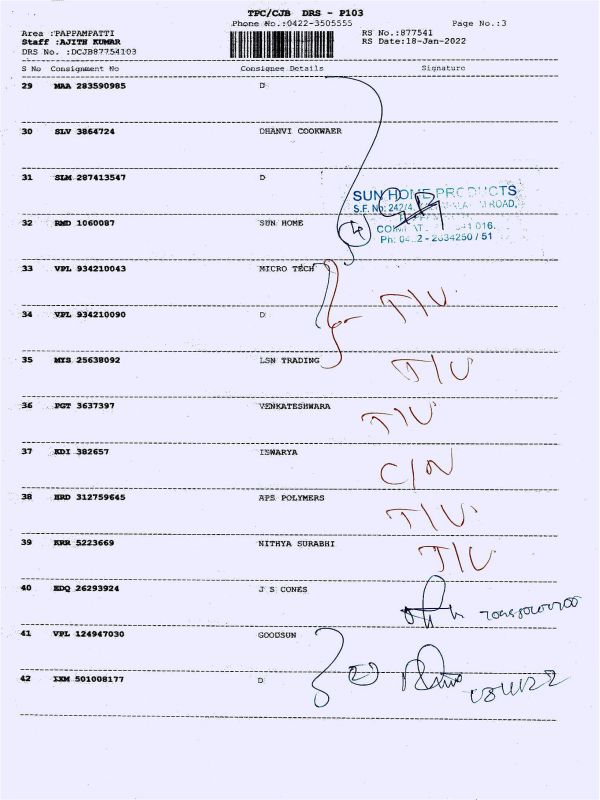 TPC/CJB DRS - P103
Phone No.:0422-3505555 Page No.:3
Area :PAPPAMPATTI RS No.:877541
Staff :AJITH KUMAR RS Date:18-Jan-2022
DRS No. :DCJB87754103
S No Consignment No Consignee Details Signature
29 MAA 283590985 D
30 SLV 3864724 DHANVI COOKWAER
31 SLM 287413547 D
SUN HOME PRODUCTS
S.F. No: 242/4, ROAD,
32 RMD 1060087 SUN HOME
4
016.
Ph: 0422 - 2634250 / 51
33 VPL 934210043 MICRO TECH
T/U
34 VPL 934210090 D
35 MYS 25638092 LSN TRADING
T/U
36 PGT 3637397 VENKATESHWARA
T/U
37 KDI 382657 ISWARYA
C/N
38 HRD 312759645 APS POLYMERS
T/U
39 KRR 5223669 NITHYA SURABHI
T/U
40 EDQ 26293924 J S CONES
41 VPL 124947030 GOODSUN
2
42 IXM 501008177 D